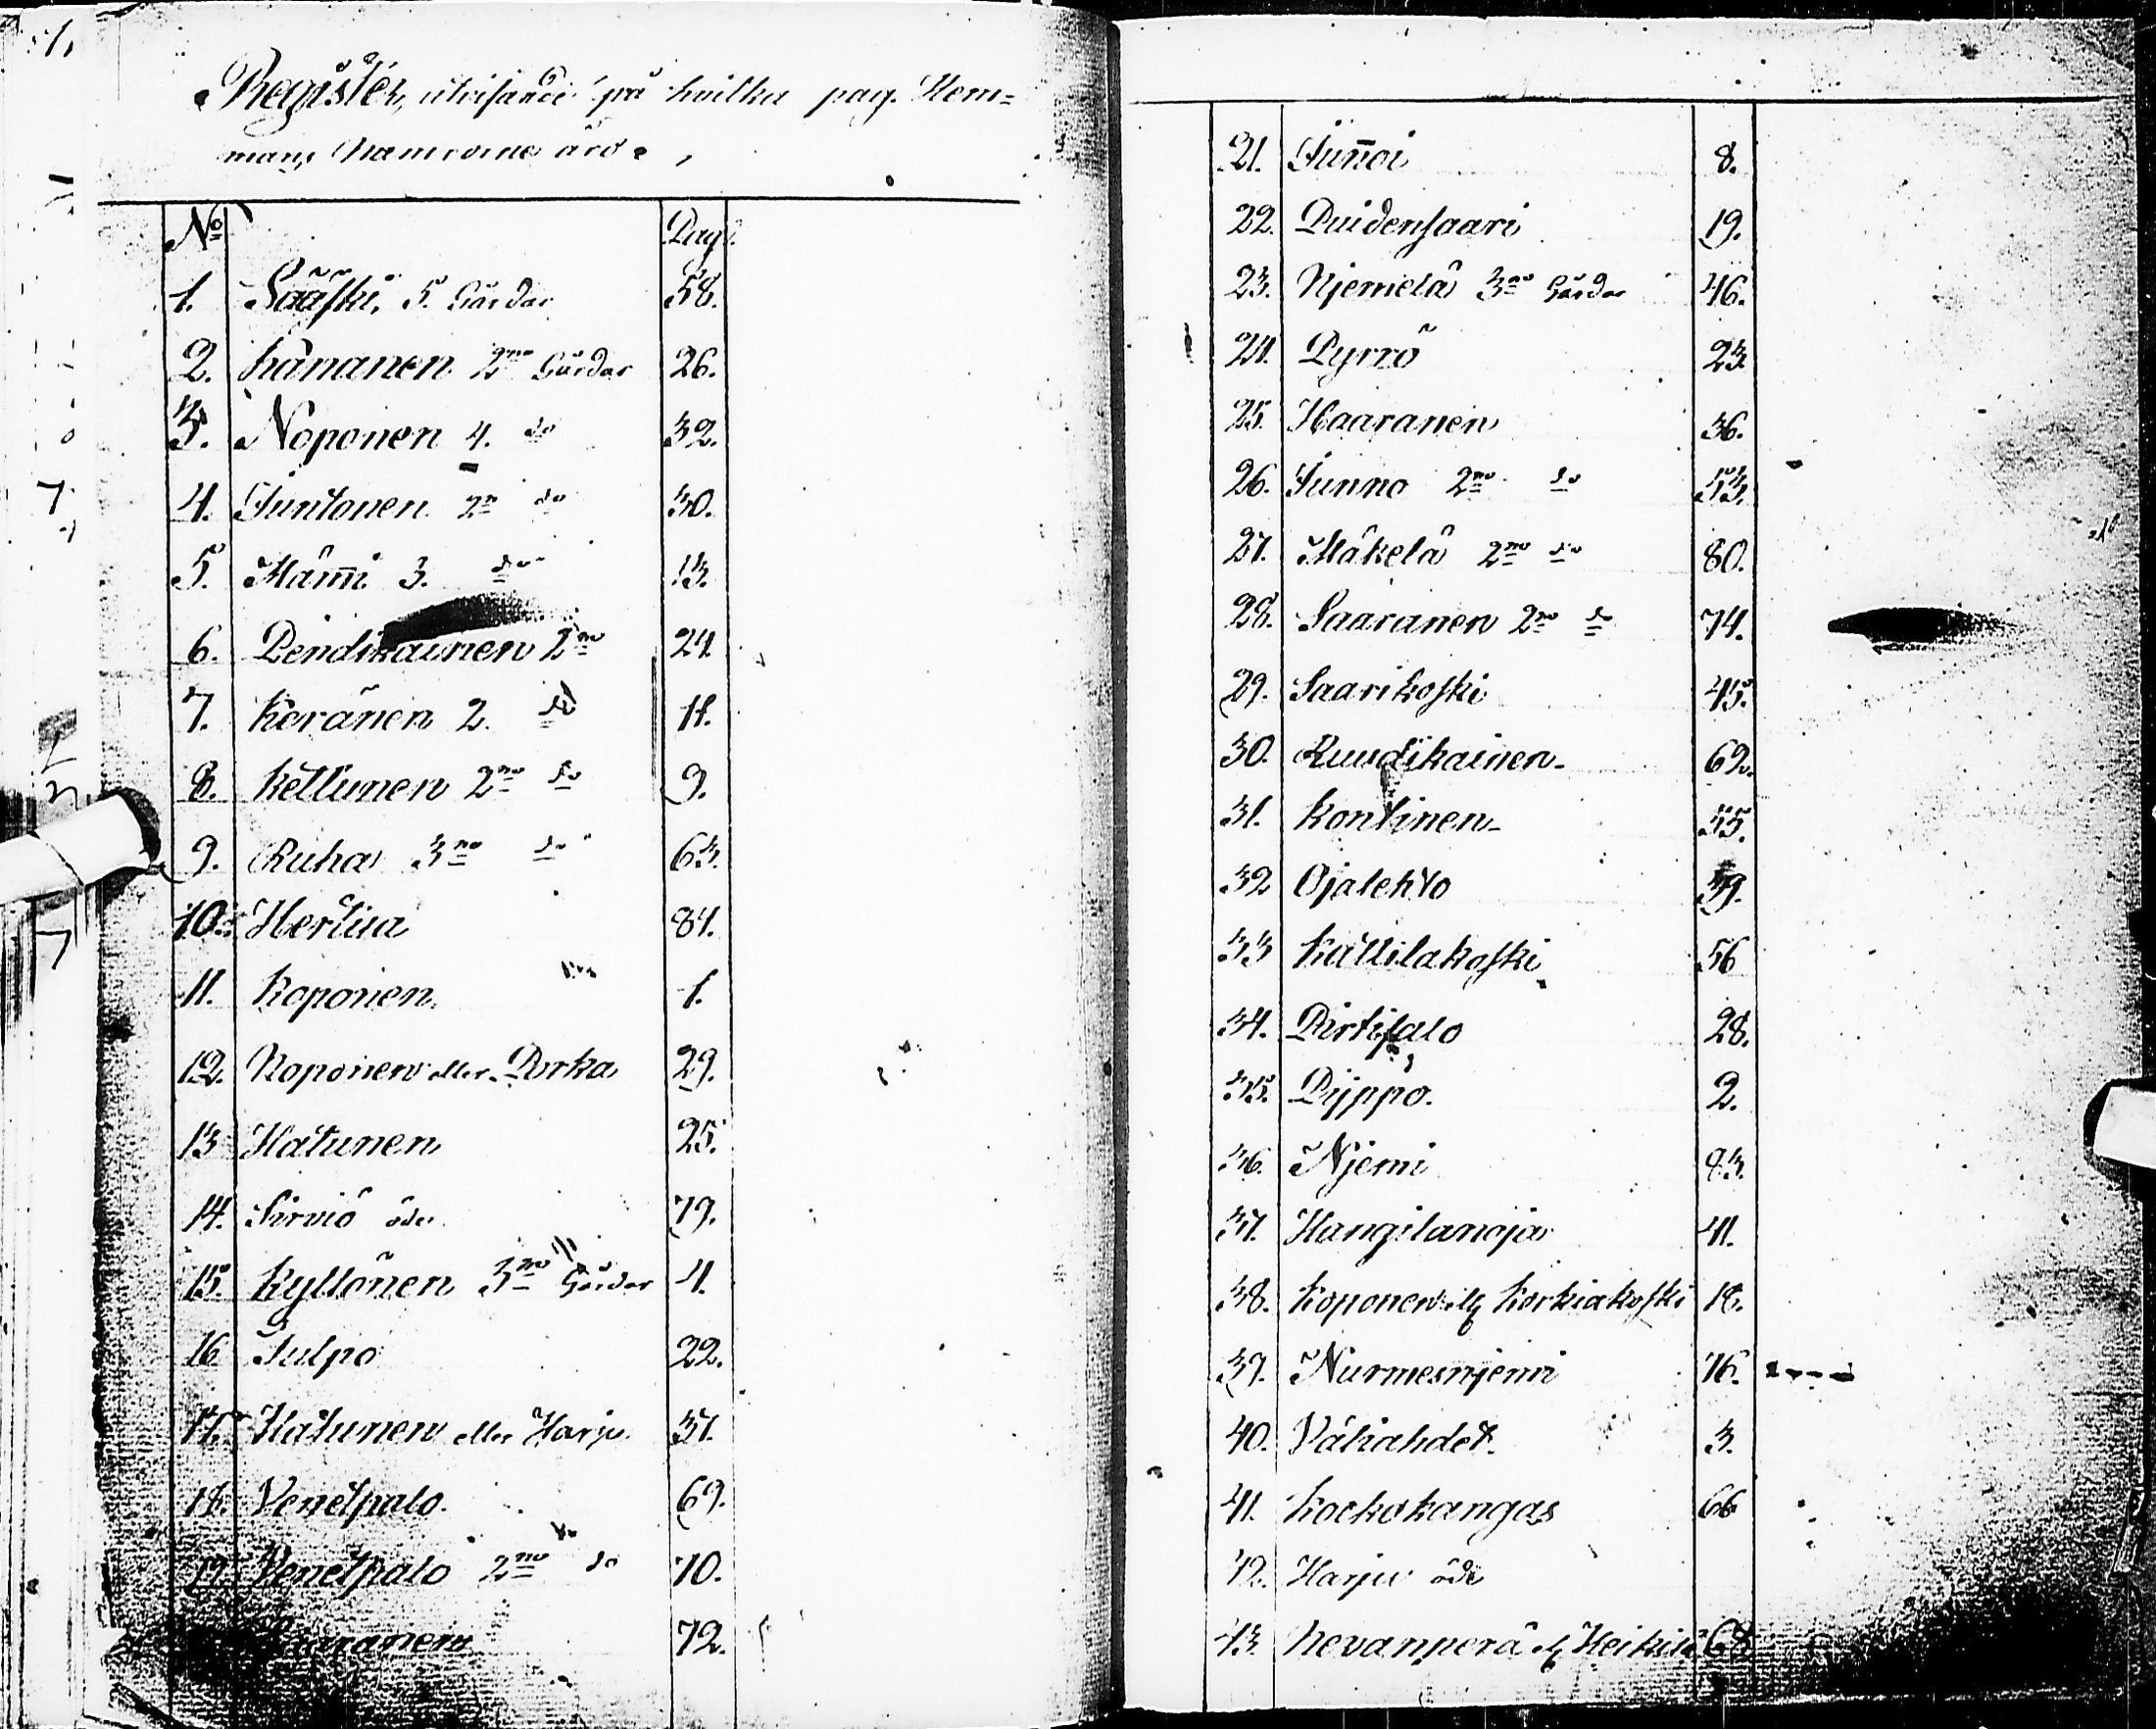 Register, utvisande på hvilka pag. Hem=
mans Numrorne äro.
No Pag:
1. Sääski, 5. Gårdar 58.
2. Känänen 2ne Gårdar 26.
3. Noponen 4. do 32.
4. Juntonen 2ne do 30.
5. Mäm̄i 3. do 13.
6. Pendikäinen 2ne 24.
7. Keränen 2. do 11.
8. Kettunen 2ne do 9.
9. Ruha 3ne do 63.
10. Hertua 84.
11. Koponen. 1.
12. Noponen eller Purka 29.
13 Hatunen 25.
14. Sirviö öde 79.
15. Kyllönen 3ne Gårdar 4.
16 Tulpo 22.
17. Hatunen eller Harju 37.
18. Venetpalo. 69.
19. Venetpalo 2ne do 70.
72.
21. Jun̄oi 8.
22. Puidensaari 19.
23. Njemelä 3ne Gårdar 46.
24. Pyrrö 23
25. Haaranen 36.
26. Junno 2ne do 53.
27. Mäkelä 2ne do 80.
28. Saaranen 2ne do 74.
29. Saarikoski 45.
30. Ruudikainen 62.
31. Kontinen 35.
32 Ojalehto 39.
33 Kattilakoski 56
34. Pirtisalo 28.
35. Pijppo. 2.
36. Njemi 83.
37. Hangilanoja 41.
38. Koponen ell. Korkiakoski 18.
39. Nurmesnjemi 76.
40. Väliahdet. 3.
41. Kockokangas 66
42. Harju öde
43. Nevanperä ell. Heikilä 68